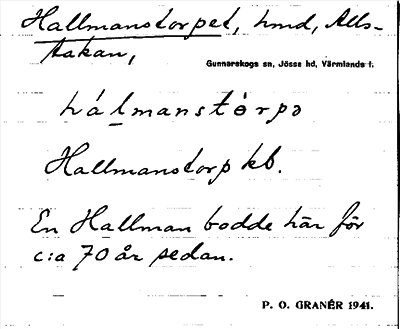 Hallmanstorpet, hmd, Alls-
takan,
Gunnarskogs sn, Jösse hd, Värmlands l.
hálmanstòrpə
Hallmanstorp kb.
En Hallman bodde här för
c:a 70 år sedan.
P. O. GRANÉR 1941.